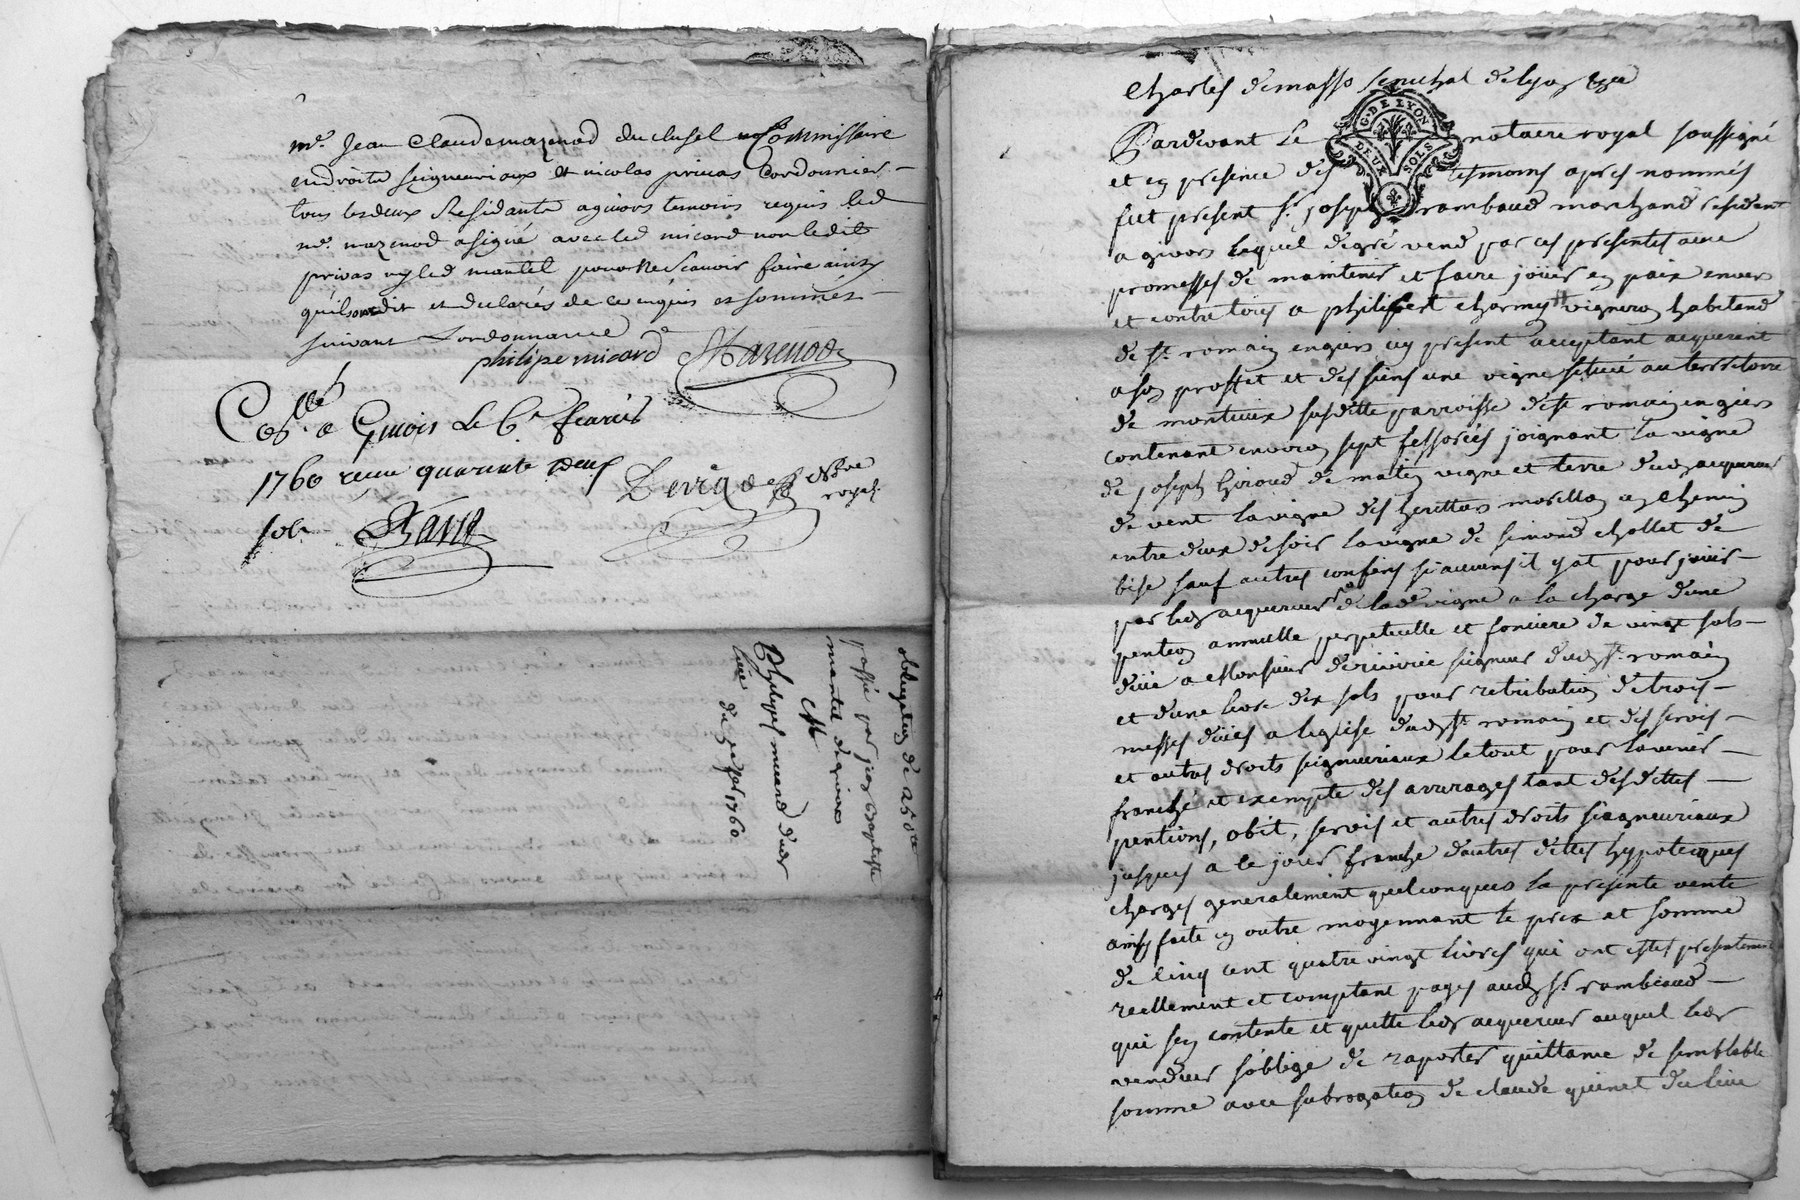 me. Jean Claude mazenod du clusel Commissaire
en droits seigneuriaux et nicolas privas Cordonnier
tous les deux Residants a givors temoins requis led
me. mazenod a signé avec led micard non ledit
privas ny led mantel pour ne scavoir faire ainsy
qu'ils ont dit et declarés de ce enquis et sommes
suivant Lordonnance
philipe micard Mazenod
Collé a Givors Le
1760 recu quarente deux
sols
royal
obligation de
passé par jean Baptiste
mantel de givors
A
Philipes micard dud
lieu
du 1760
Charles demasso senechal de lyon
Pardevant Le notaire royal soussigné
et en presence des tesmoins apres nommés
fut present sr. joseph rambaud marchand resident
a givors lequel de gré vend par ces presentes avec
promesses de maintenir et faire jouir en paix envers
et contre tous a philibert charmy vigneron habitand
de st. romain en giers cy present acceptant acquerent
a son proffit et des siens une vigne située au territoire
de montuix susditte parroisse de st romain en giers
contenant environ sept fessorées joignant la vigne
de joseph Giroud de matin vigne et terre dud acquereur
de vent la vigne des heritiers morillon un chemin
entre deux de soir la vigne de simond chollet de
bise sauf autres confins si aucuns il y at pour jouir
par led acquereur de lade vigne a la charge d'une
pention annuelle perpetuelle et fonciere de vingt sols
düe a Monsieur de seigneur dud st. romain
et d'une livre dix sols pour retribution de trois
messes dües a leglise dud st. romain et des servis
et autres droits seigneuriaux le tout pour lavenir
franche et exempte des arrerages tant desdittes
pentions, obit, servis et autres droits seigneuriaux
jusques a ce jour franche dautres dettes hypoteques
charges generalement quelconques la presente vente
ainsy faite en outre moyennant le prix et somme
de cinq cent quatre vingt livres qui ont estés presentement
reellement et comptant payés aud sr. rambaud
qui sen contente et quitte led acquereur auquel led
vendeur s'oblige de raporter quittance de semblable
somme avec subrogation de claude quinet du lieu
G. DE LYON
DEUX SOLS